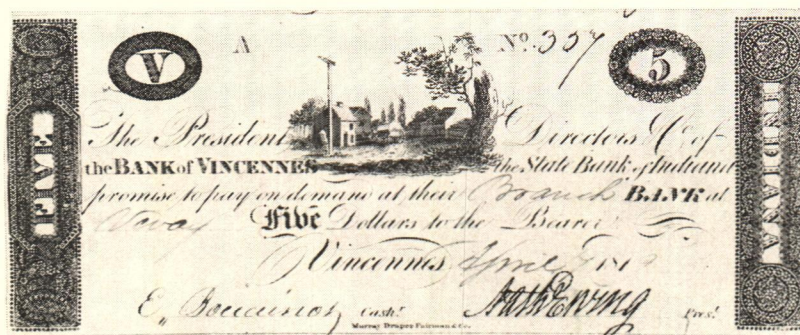 V A No. 357 5
FIVE
INDIANA
The President Directors & Co. of
the BANK of VINCENNES the State Bank of Indiana
promise to pay on demand at their Branch BANK at
Vevay Five Dollars to the Bearer
Vincennes April 181
E. Boudinot Cash.r Nath Ewing Pres.t
Murray Draper Fairman & Co.